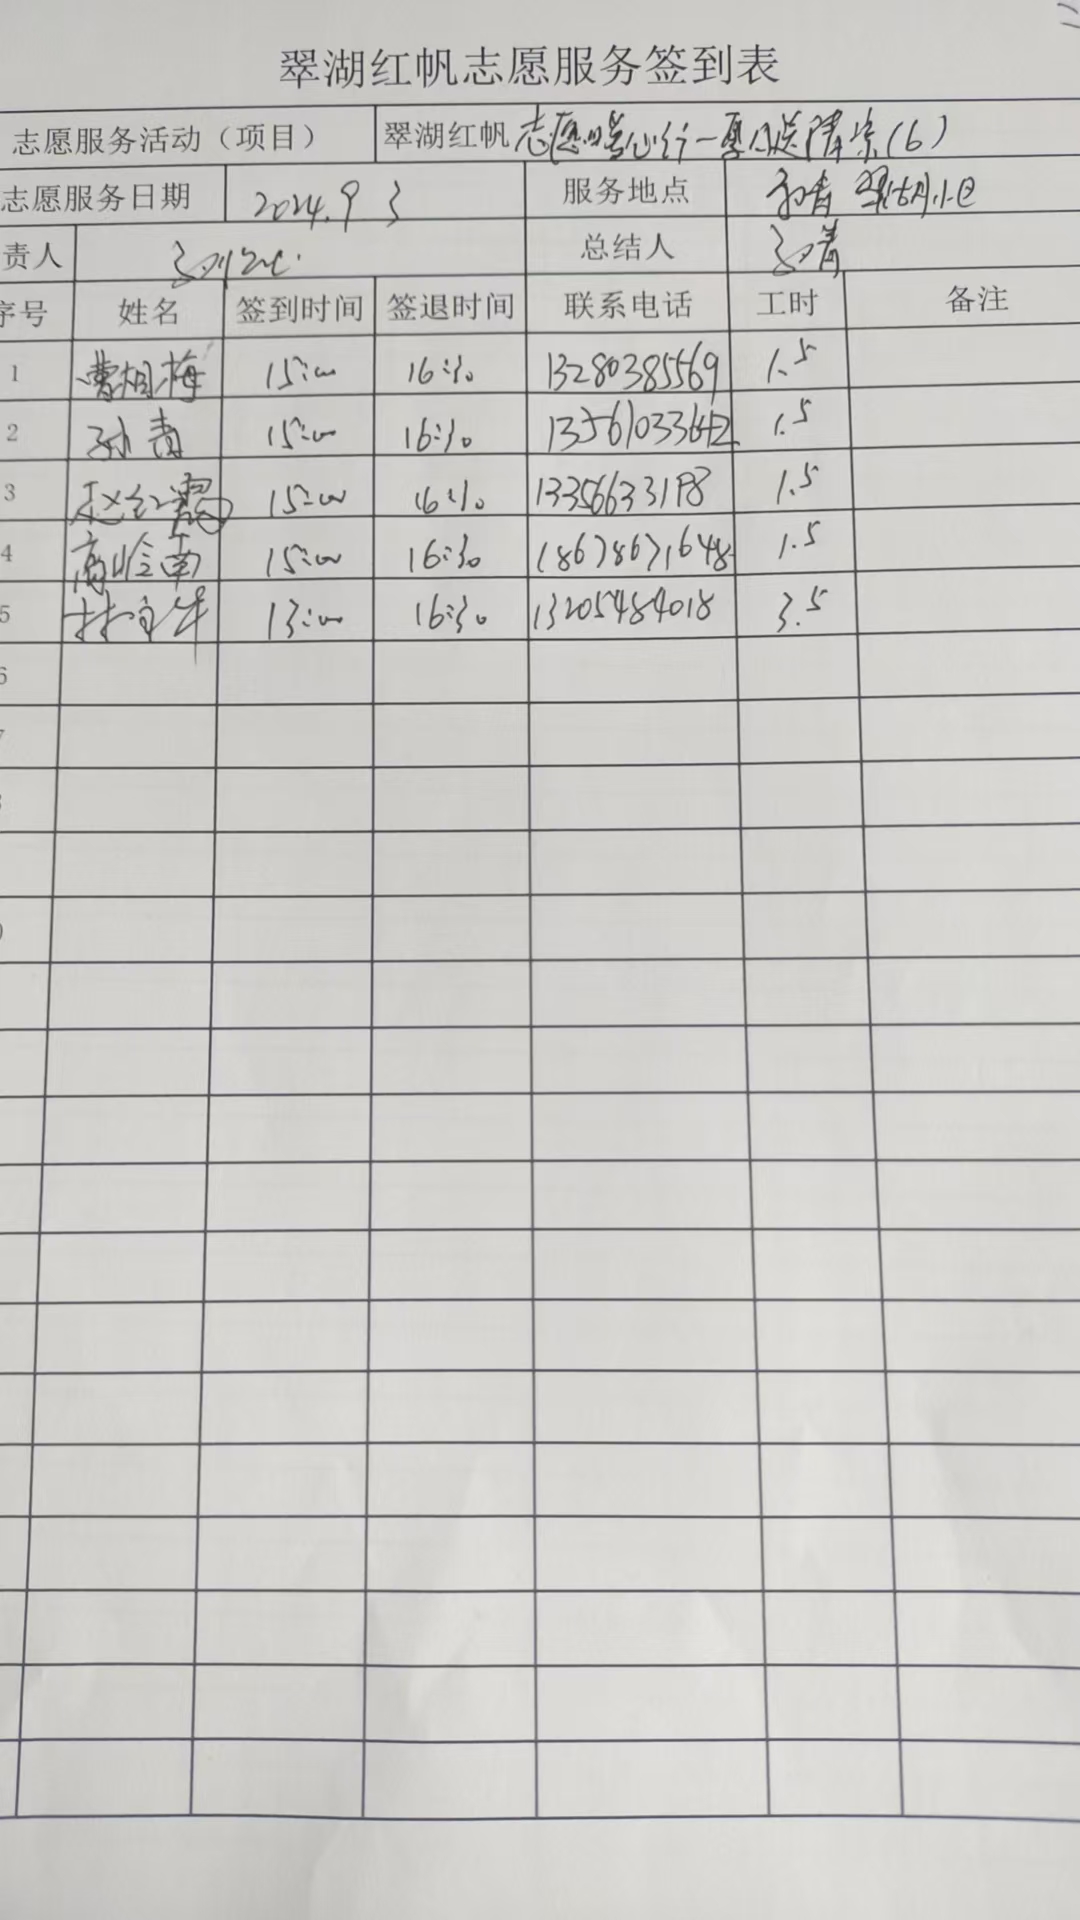 翠湖红帆志愿服务签到表
志愿服务活动（项目） 翠湖红帆 志愿暖心行一夏日送清凉(6)
志愿服务日期 2024.9 3 服务地点 翠湖小区
责人 总结人 孙青
序号 姓名 签到时间 签退时间 联系电话 工时 备注
1 曹相梅 15:00 16:30 13280385569 1.5
2 孙青 15:00 16:30 13561033642 1.5
3 赵红霞 15:00 16:30 13356633198 1.5
4 高岭南 15:00 16:30 18678671648 1.5
5 林 13:00 16:30 13205484018 3.5
6
7